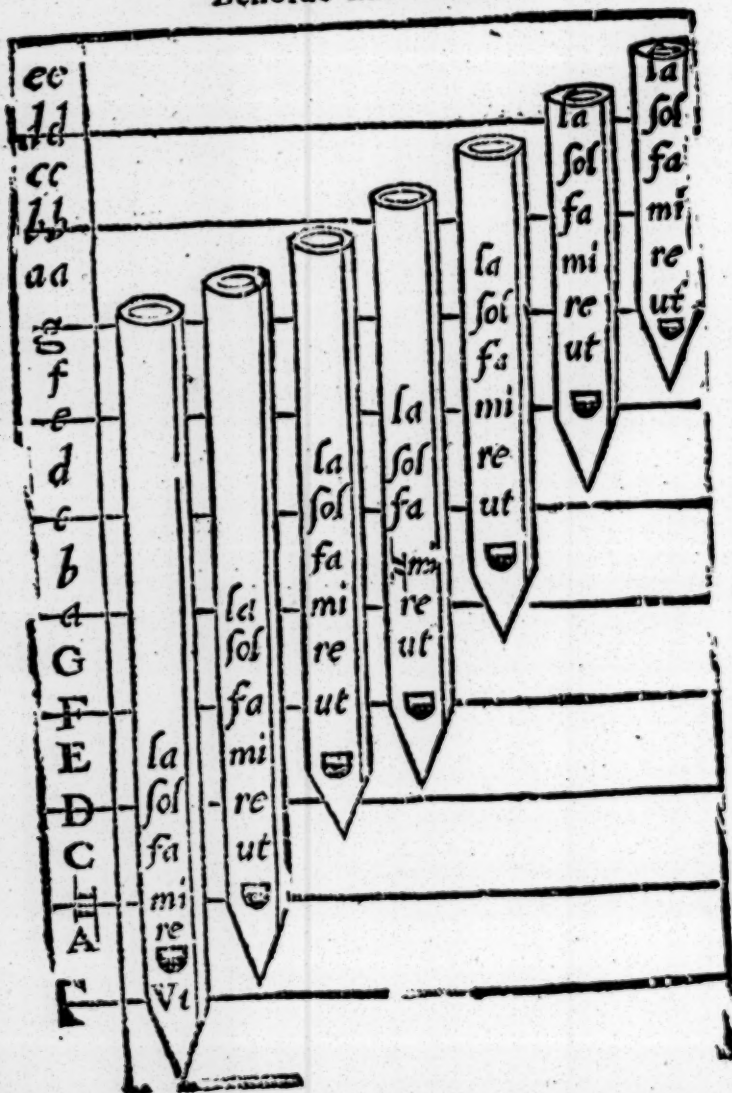 ee
dd
cc
bb
aa
g
f
e
d
c
b
a
G
F
E
D
C
A
Γ
la
ſol
fa
mi
re
Vt
la
ſol
fa
mi
re
ut
la
ſol
fa
mi
re
ut
la
ſol
fa
mi
re
ut
la
ſol
fa
mi
re
ut
la
ſol
fa
mi
re
ut
la
ſol
fa
mi
re
ut